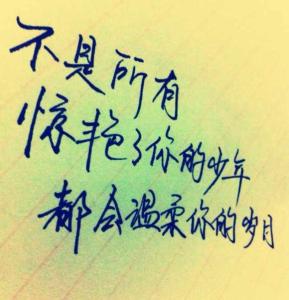 不是所有
惊艳了你的少年
都会温柔你的岁月